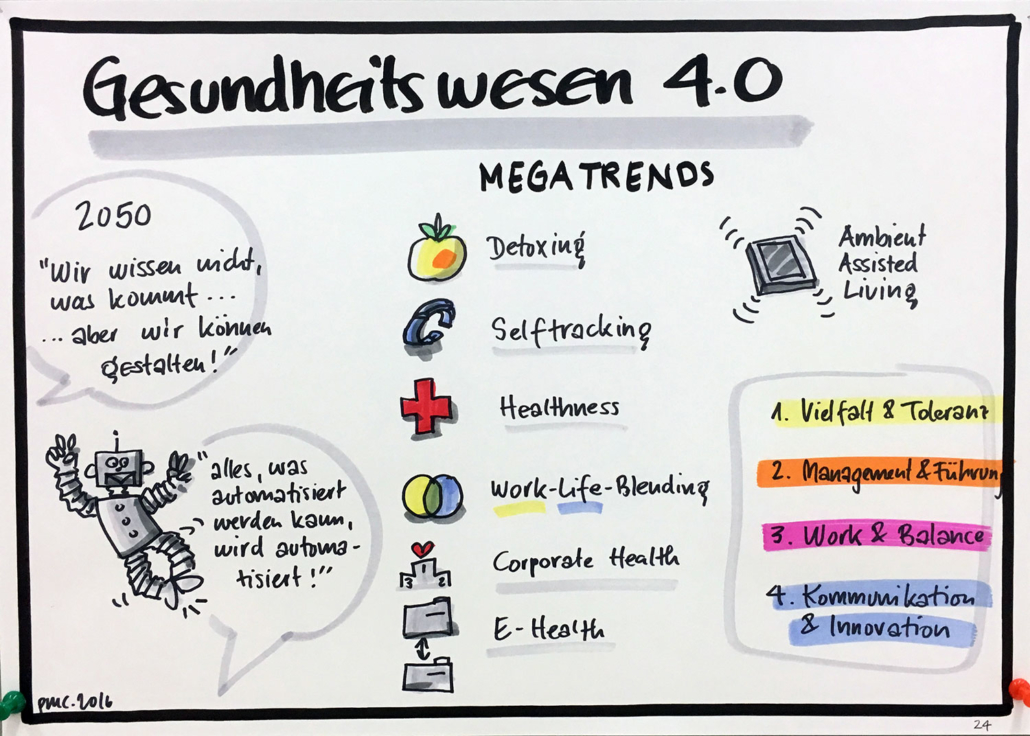 Gesundheitswesen 4.0
MEGATRENDS
2050
"Wir wissen nicht,
was kommt ...
... aber wir können
gestalten!"
"alles, was
automatisiert
werden kann,
wird automa-
tisiert!"
Detoxing
Selftracking
Healthness
Work-Life-Blending
3 1 2
Corporate Health
E-Health
Ambient
Assisted
Living
1. Vielfalt & Toleranz
2. Management & Führung
3. Work & Balance
4. Kommunikation
& Innovation
pmc.2016
24